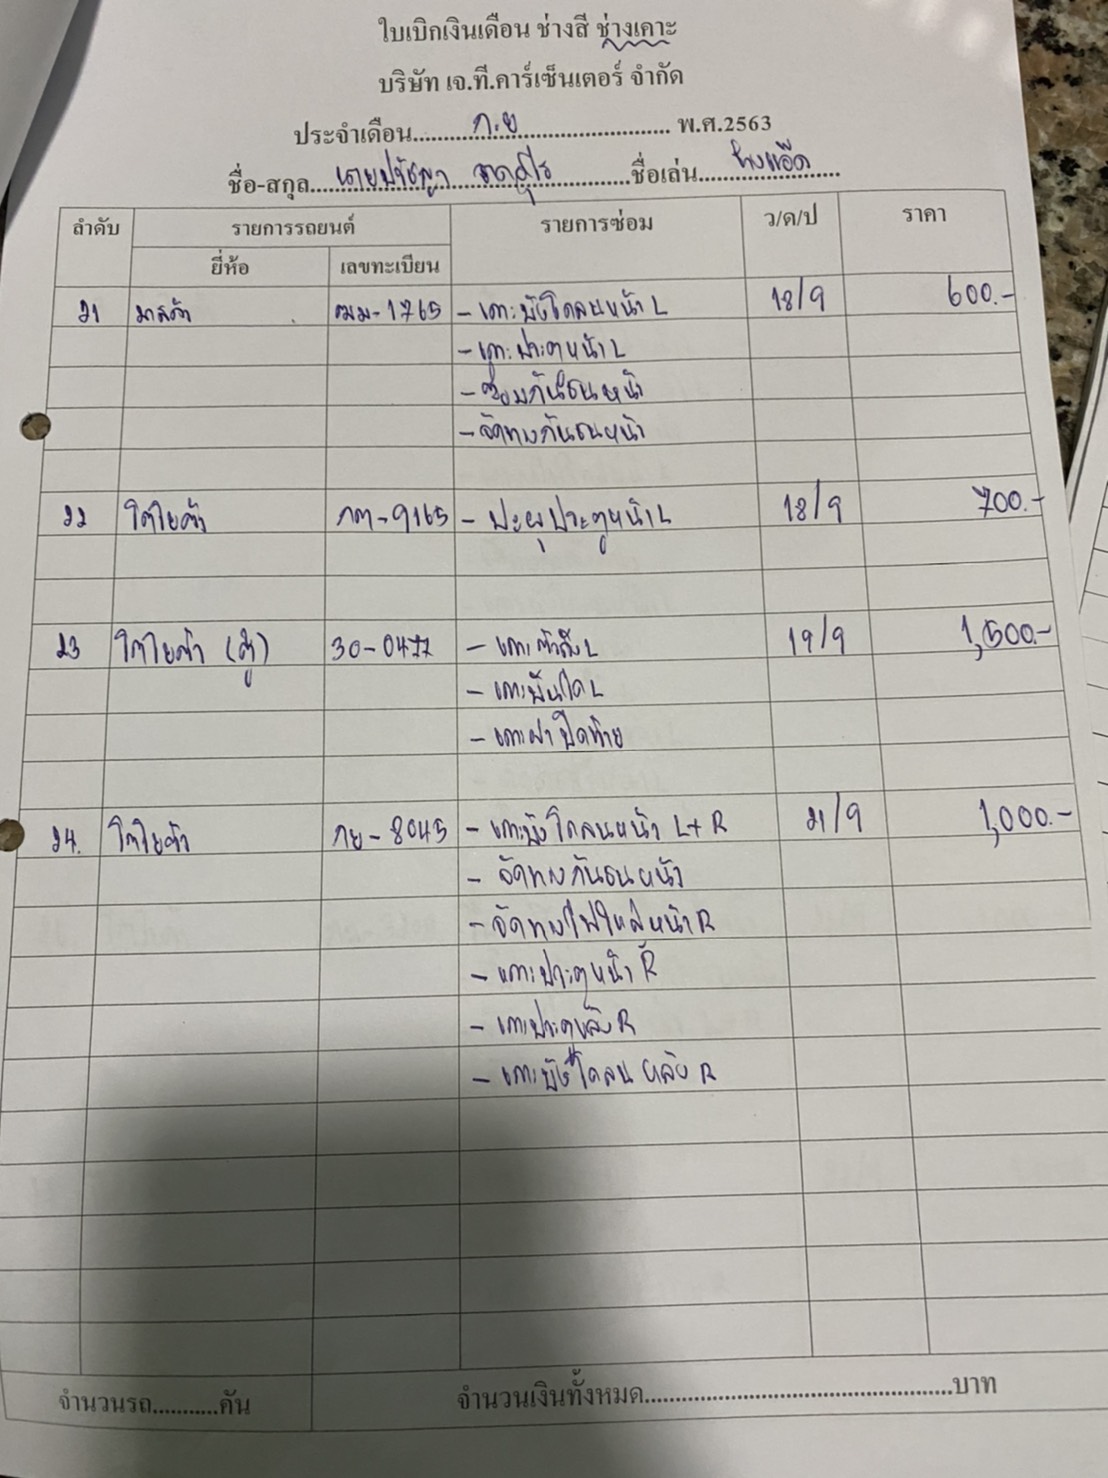 ใบเบิกเงินเดือน ช่างสี ช่างเคาะ
บริษัท เจ.ที.คาร์เซ็นเตอร์ จำกัด
ประจำเดือน.......ก.ย....... พ.ศ.2563
ชื่อ-สกุล.......นายปรัชญา.......ชื่อเล่น.......ช่างแอ๊ด.......
ลำดับ รายการรถยนต์ รายการซ่อม ว/ด/ป ราคา
ยี่ห้อ เลขทะเบียน
21 มาสด้า ฌม-1765 - เคาะบังโคลนหน้า L 18/9 600.-
- เคาะประตูหน้า L
- ซ่อมกันชนหน้า
- จัดทรงกันชนหน้า
22 โตโยต้า กต-9165 - ปะผุประตูหน้า L 18/9 700.-
23 โตโยต้า (ตู้) 30-0477 - เคาะตัวถัง L 19/9 1,500.-
- เคาะบันได L
- เคาะฝาปิดท้าย
24. โตโยต้า กย-8045 - เคาะบังโคลนหน้า L+R 21/9 1,000.-
- จัดทรงกันชนหน้า
- จัดทรงไฟใหญ่หน้า R
- เคาะประตูหน้า R
- เคาะประตูหลัง R
- เคาะบังโคลนหลัง R
จำนวนรถ...........คัน จำนวนเงินทั้งหมด..............................................บาท